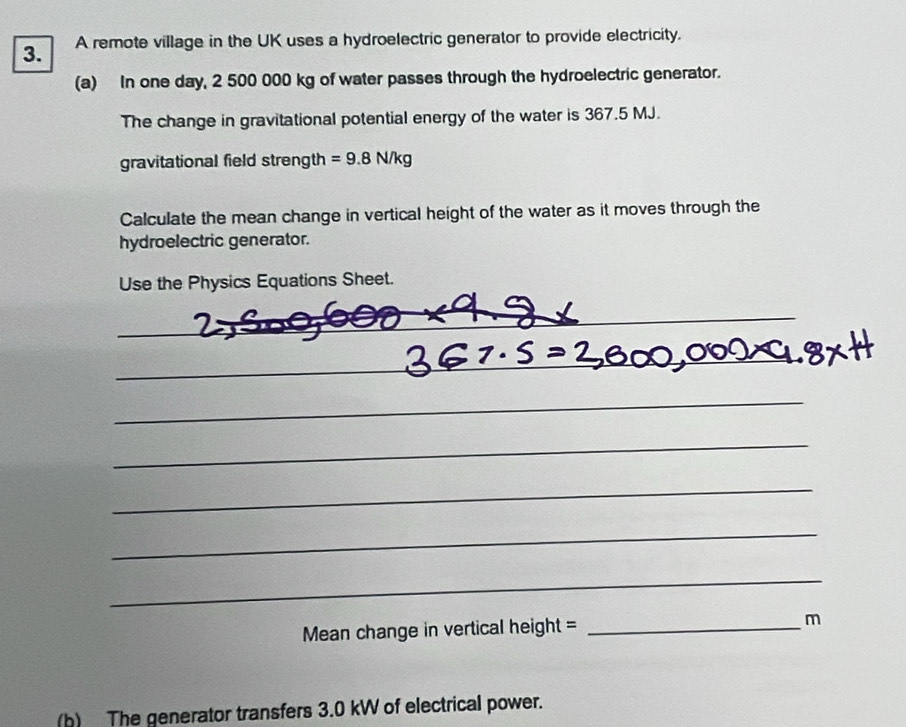 3. A remote village in the UK uses a hydroelectric generator to provide electricity.
(a) In one day, 2 500 000 kg of water passes through the hydroelectric generator.
The change in gravitational potential energy of the water is 367.5 MJ.
gravitational field strength = 9.8 N/kg
Calculate the mean change in vertical height of the water as it moves through the
hydroelectric generator.
Use the Physics Equations Sheet.
2,500,000 × 9.8 ×
367.5 = 2,500,000×9.8×H
Mean change in vertical height = ____ m
(b) The generator transfers 3.0 kW of electrical power.